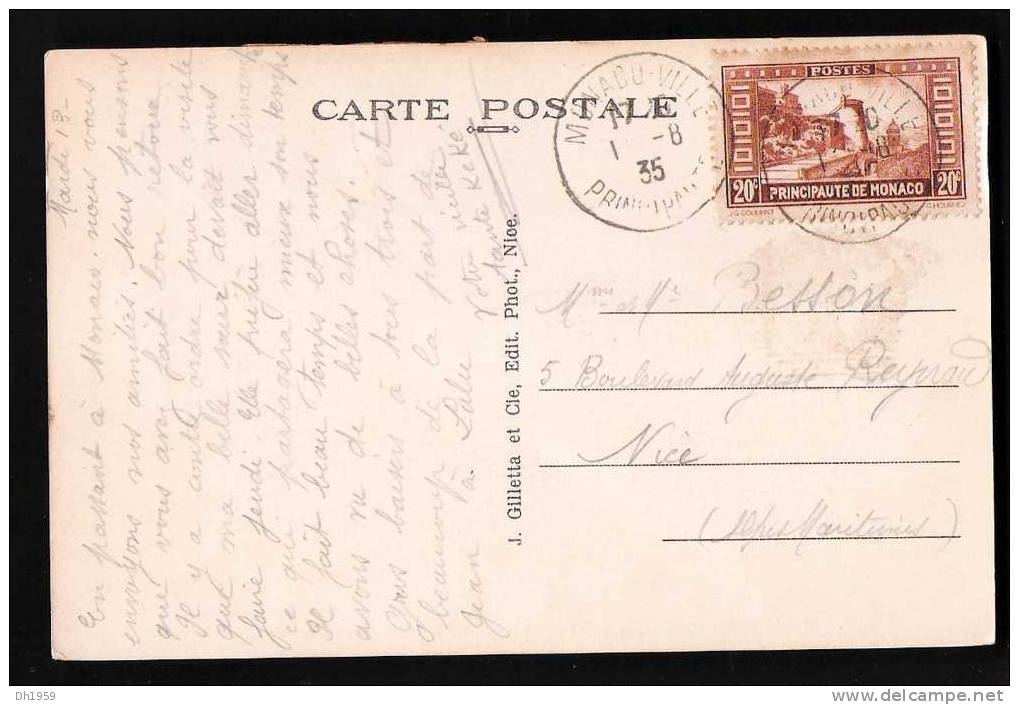 CARTE POSTALE
MONACO-VILLE
17
1 -8
35
PRINCIPAUTE
POSTES
20c PRINCIPAUTE DE MONACO 20c
J. Gilletta et Cie, Edit. Phot., Nice.
Mardi 13
En passant à Monaco, nous vous
envoyons nos amitiés. Nous pensons
que vous avez fait bon retour
Il y a contre ordre pour la visite
que ma belle sœur devait vous
faire jeudi Elle préfère aller dimanche
ce qui passera mieux son temps
Il fait beau temps et nous
avons vu de belles choses.
Gros baisers à tous trois et
beaucoup de la part de
Jean à Lulu
Votre vieille
tante Kéké
Mme et Mr Besson
5 Boulevard Auguste Reynaud
Nice
(Alpes Maritimes)
DH1959
www.delcampe.net